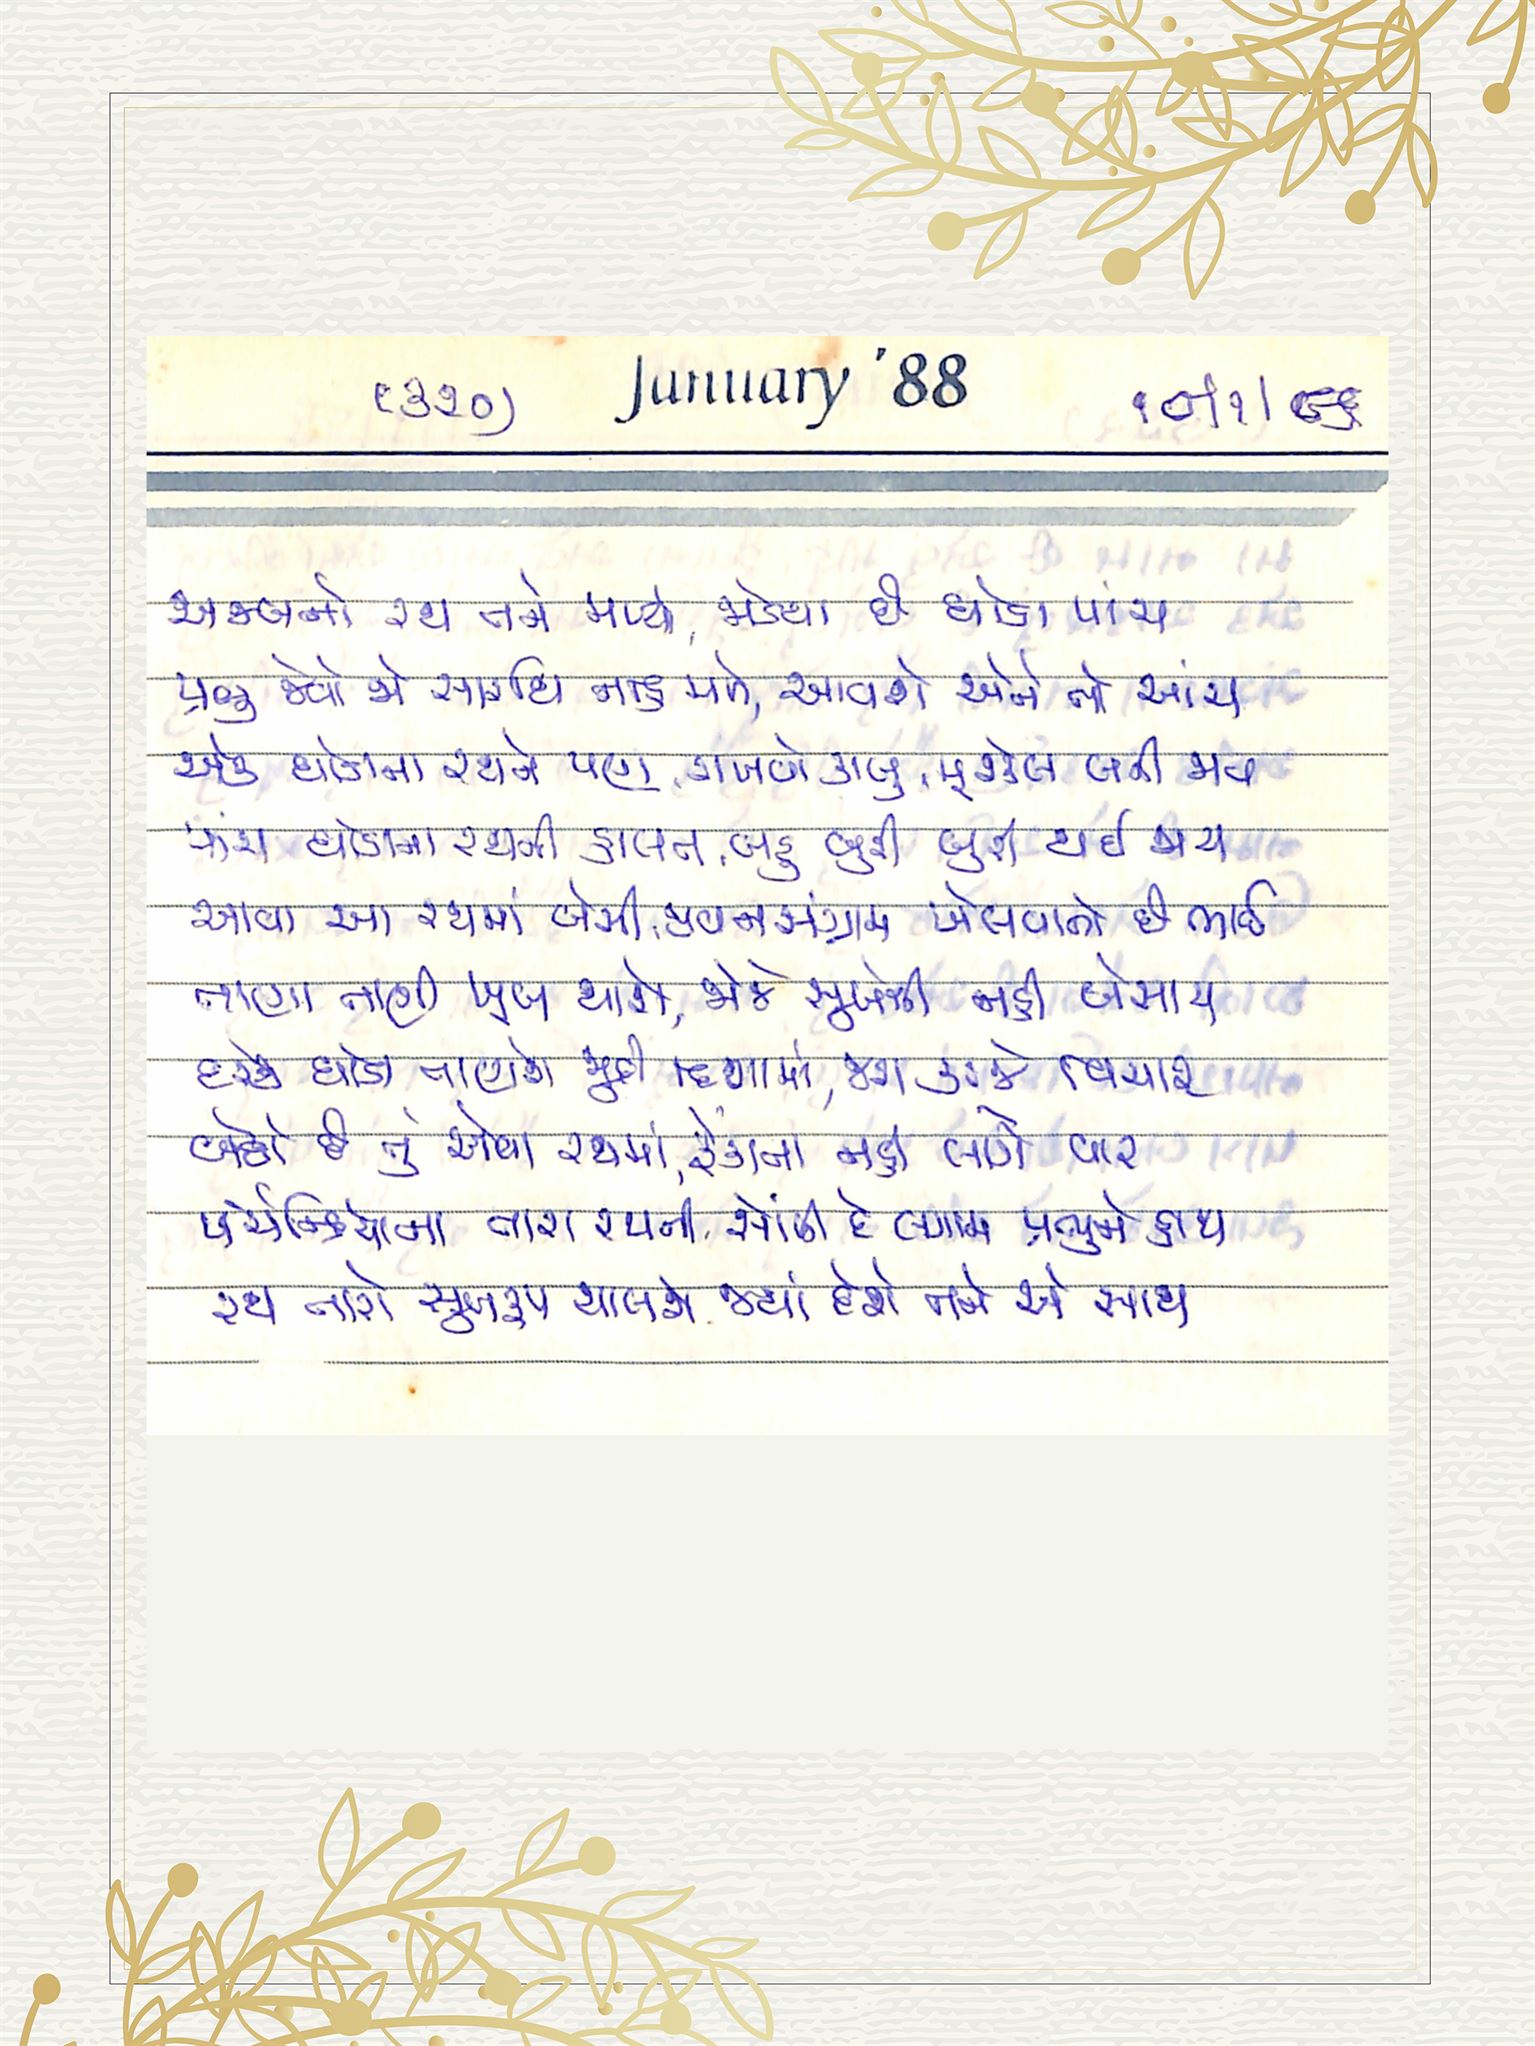 (૩૨૦) January '88 ૧૦/૧/૮૬
અજબનો રથ તને મળ્યો, જોડયા છે ઘોડા પાંચ
પ્રભુ જેવો જો સારથિ નહિ મળે, આવશે એને તો આંચ
એક ઘોડાના રથને પણ, રાખવો કાબુ, મૂશ્કેલ બની જાય
પાંચ ઘોડાના રથની હાલત, બહુ બુરી બુરી થઈ જાય
આવા આ રથમાં બેસી, જીવનસંગ્રામ ખેલવાનો છે ભાઈ
તાણા તાણી ખૂબ થાશે, જોજે સુખેથી નહીં બેસાય
દરેક ઘોડો તાણશે જુદી દિશામાં, જરા કરજે વિચાર
બેઠો છે તું એવા રથમાં, ફેંકાતા નહીં લાગે વાર
પંચેન્દ્રિયોના તારા રથની, સોંપી દે લગામ પ્રભુને હાથ
રથ તારો સુખરૂપ ચાલશે, જ્યાં દેશે તને એ સાથ